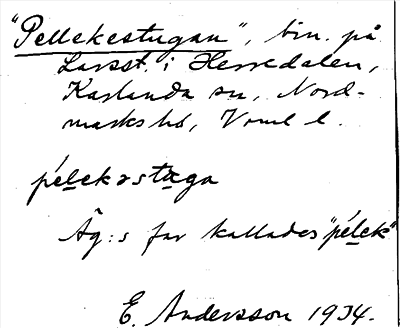 "Pellekestugan", bn. på
Larsst. i Herredalen,
Karlanda sn, Nord-
marks hd, Vrml l.
pélekəstuga
Äg:s far kallades "pélek"
E. Andersson 1934.